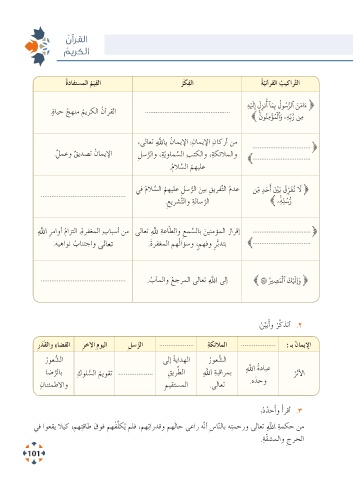 القرآن
الكريم
التّراكيبُ القرآنيّةُ
الفِكَرُ
القِيَمُ المستفادةُ
﴿ ءَامَنَ ٱلرَّسُولُ بِمَآ أُنزِلَ إِلَيْهِ
مِن رَّبِّهِۦ وَٱلْمُؤْمِنُونَ ﴾
........................................
القرآنُ الكريمُ منهجُ حياةٍ.
﴿ ........................
........................ ﴾
من أركانِ الإيمانِ: الإيمانُ باللهِ تعالى،
والملائكةِ، والكتبِ السّماويّةِ، والرّسلِ
عليهمُ السّلامُ.
الإيمانُ تصديقٌ وعملٌ.
﴿ لَا نُفَرِّقُ بَيْنَ أَحَدٍ مِّن
رُّسُلِهِۦ ﴾
عدمُ التّفريقِ بينَ الرّسلِ عليهمُ السّلامُ في
الرّسالةِ والتّشريعِ.
........................................
﴿ ........................
........................ ﴾
إقرارُ المؤمنينَ بالسّمعِ والطّاعةِ للهِ تعالى
بتدبُّرٍ وفهمٍ، وسؤالُهم المغفرةَ.
من أسبابِ المغفرةِ، التزامُ أوامرِ اللهِ
تعالى واجتنابُ نواهيهِ.
﴿ وَإِلَيْكَ ٱلْمَصِيرُ ﴾
إلى اللهِ تعالى المرجعُ والمآبُ.
........................................
٢. أتذكّرُ وأُبيّنُ
الإيمانُ بـ :
................
الملائكةِ
................
الرّسلِ
اليومِ الآخرِ
القضاءِ والقدَرِ
الأثرُ
عبادةُ اللهِ
وحدَه.
الشّعورُ
بمراقبةِ اللهِ
تعالى.
الهدايةُ إلى
الطّريقِ
المستقيمِ
................
تقويمُ السّلوكِ
الشّعورُ
بالرّضا
والاطمئنانِ
٣. أقرأُ وأُحدّدُ:
من حكمةِ اللهِ تعالى ورحمتِه بالنّاسِ أنّه راعى حالَهم وقدراتِهم، فلم يُكلّفْهم فوقَ طاقتِهم، كيلا يقعوا في
الحرجِ والمشقّةِ.
101